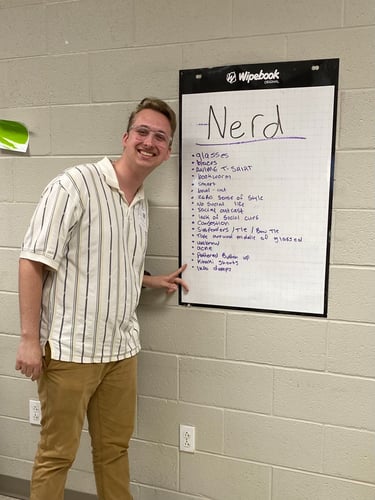 Wipebook
Nerd
glasses
braces
anime T-shirt
bookworm
smart
bowl-cut
zero sense of style
no social life
social outcast
lack of social cues
Congestion
Suspenders / Tie / Bow Tie
Tape around middle of glasses
unibrow
acne
patterned Button up
khaki shorts